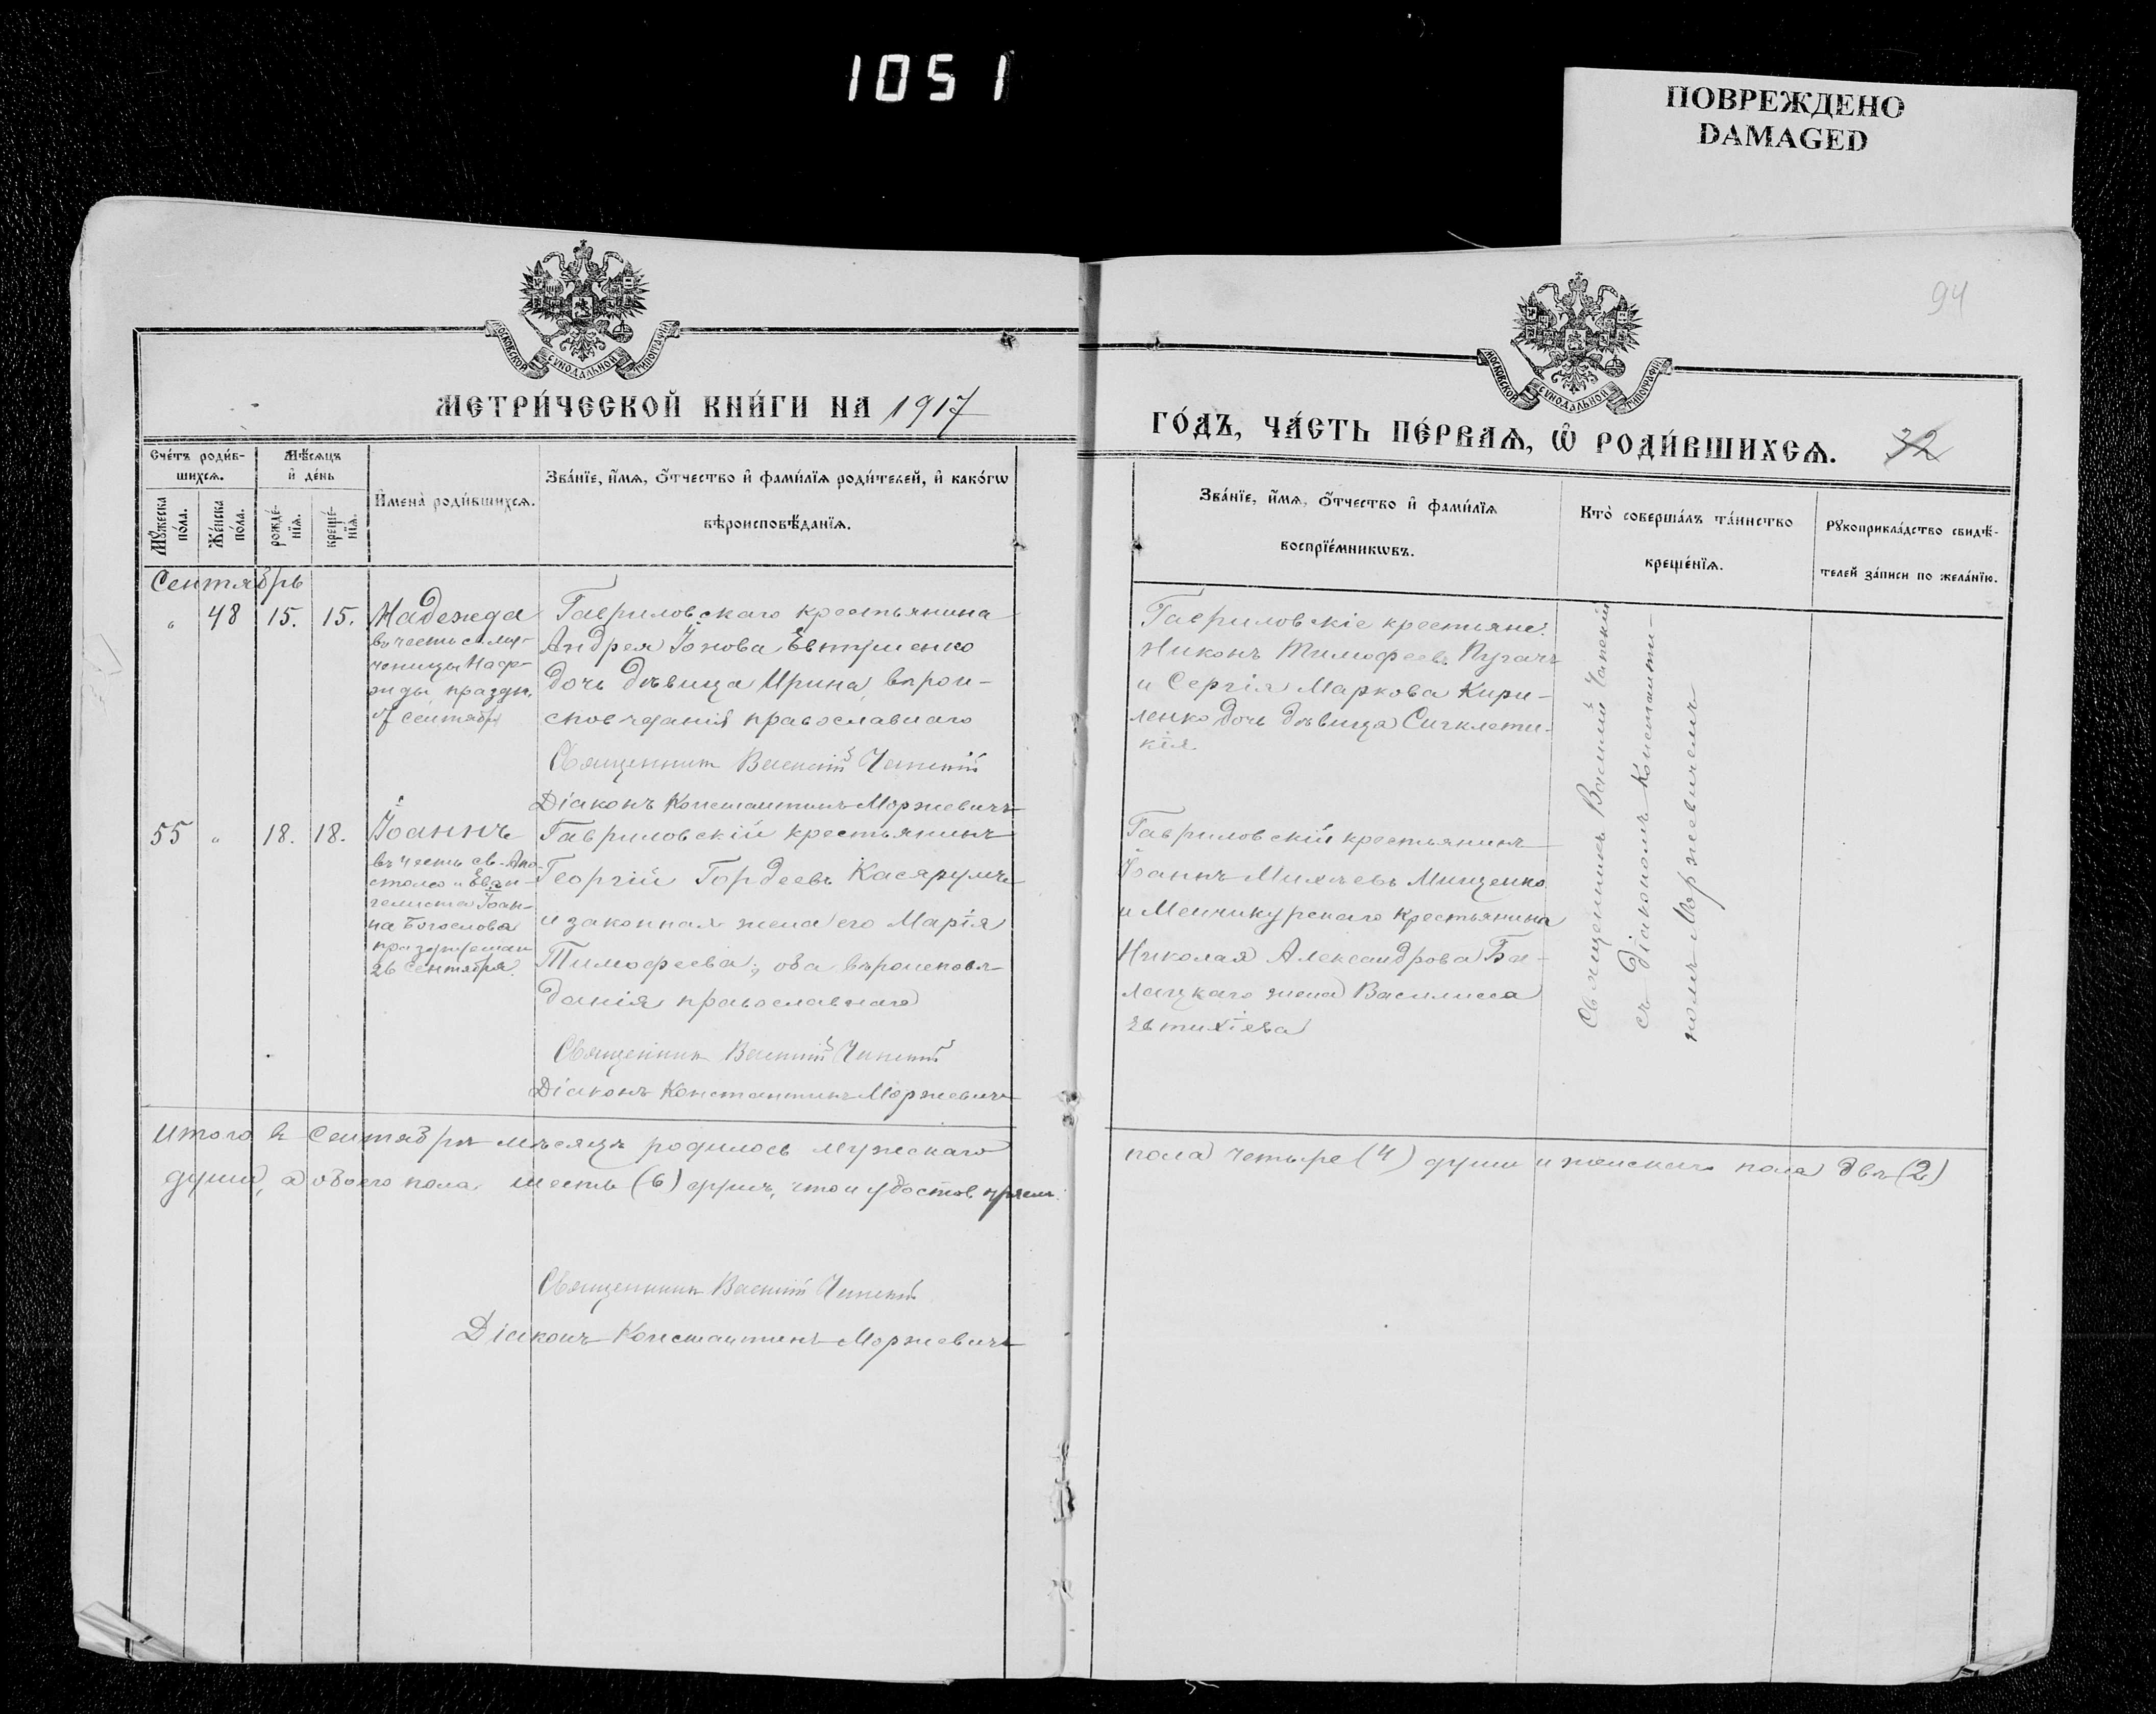 1051
ПОВРЕЖДЕНО
DAMAGED
94
МОСКОВСКОЙ СѴНОДАЛЬНОЙ ТИПОГРАФІИ
МОСКОВСКОЙ СѴНОДАЛЬНОЙ ТИПОГРАФІИ
МЕТРИ́ЧЕСКОЙ КНИ́ГИ НА 1917
ГО́ДЪ, ЧА́СТЬ ПЕ́РВАѦ, Ѽ РОДИ́ВШИХСѦ.
32
Сче́тъ роди́в-
шихсѧ.
Мꙋ́жеска
по́ла.
Же́нска
по́ла.
Мѣ́сѧцъ
и҆ де́нь
рожде́-
нїѧ.
креще́-
нїѧ.
И҆мена̀ роди́вшихсѧ.
Зва́нїе, и҆́мѧ, ѻ҆́тчество и҆ фами́лїѧ роди́телей, и҆ како́гѡ
вѣроисповѣ́данїѧ.
Зва́нїе, и҆́мѧ, ѻ҆́тчество и҆ фами́лїѧ
воспрїе́мникѡвъ.
Кто̀ соверша́лъ та́инство
креще́нїѧ.
Рꙋкоприкла́дство свидѣ́-
телей за́писи по жела́нїю.
Сентябрь
" 48 15. 15.
Надежда
въ честь св. му-
ченицы Наде-
жды праздн.
17 сентября
Гавриловскаго крестьянина
Андрея Іонова Евтушенко
дочь дѣвица Ирина, вѣрои-
сповѣданія православнаго
Священникъ Василій Чапскій
Діаконъ Константинъ Моржевичъ
Гавриловскіе крестьяне:
Никонъ Тимофеевъ Пугачъ
и Сергія Маркова Кири-
ленко дочь дѣвица Сигклети-
кія.
Священникъ Василій Чапскій
съ Діакономъ Константи-
номъ Моржевичемъ
55 " 18. 18.
Іоаннъ
въ честь св. Апо-
стола и Еван-
гелиста Іоан-
на Богослова
26 сентября.
Гавриловскій крестьянинъ
Георгій Гордеевъ Касярумъ
и законная жена его Марія
Тимофеева; оба вѣроисповѣ-
данія православнаго
Священникъ Василій Чапскій
Діаконъ Константинъ Моржевичъ
Гавриловскій крестьянинъ
Іоаннъ Михѣевъ Мищенко
и Менчикурскаго крестьянина
Николая Александрова Ба-
лацкаго жена Василисса
Евтихіева
Итого въ Сентябрѣ мѣсяцѣ родилось мужескаго
пола четыре (4) души и женскаго пола двѣ (2)
души, а обоего пола шесть (6) душъ, что и удостовѣряемъ:
Священникъ Василій Чапскій
Діаконъ Константинъ Моржевичъ